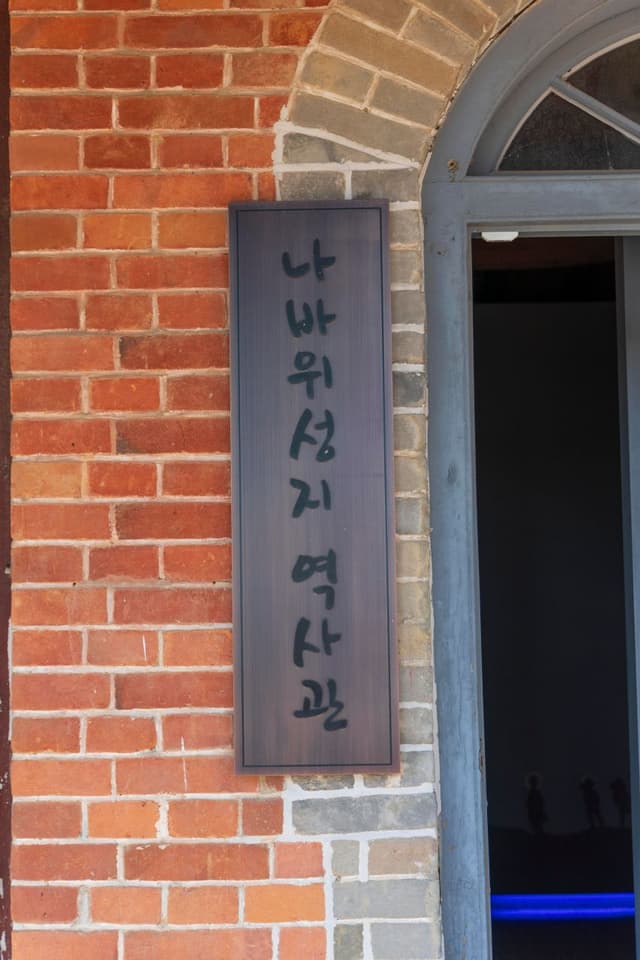 나바위성지 역사관